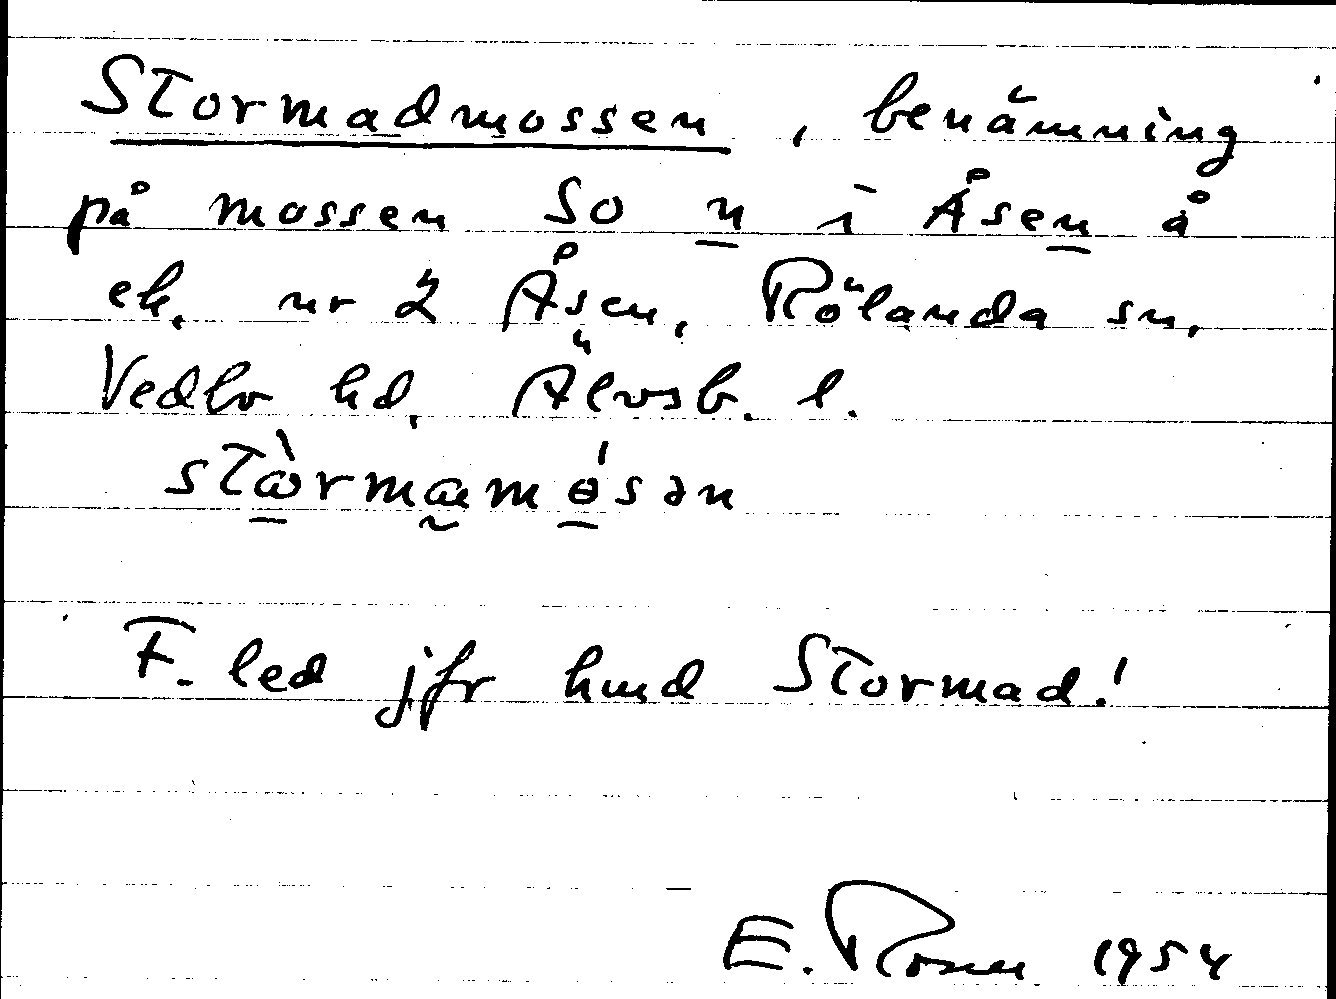 Stormadmossen, benämning
på mossen SO n i Åsen å
ek. nr 2 Åsen, Rölanda sn,
Vedbo hd, Älvsb. l.
stὼrmαmɵ́sən
F. led jfr hmd Stormad!
E. Rosen 1954